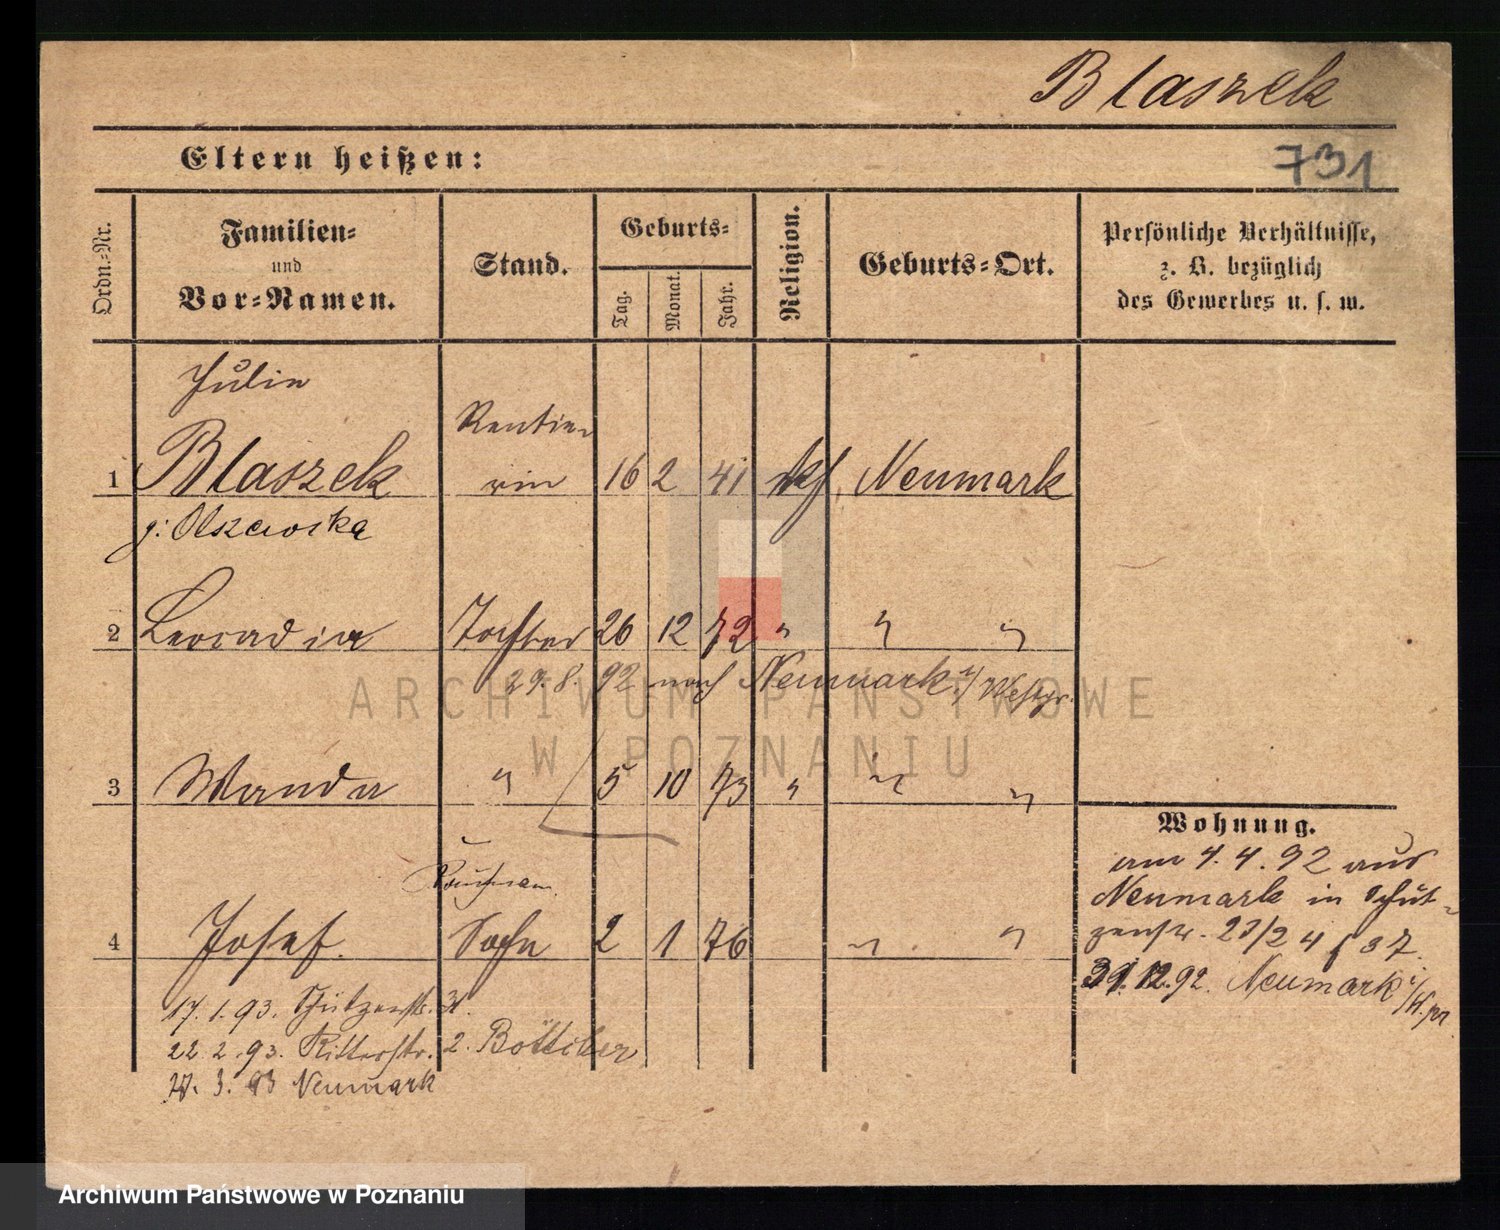 Blaszek
Eltern heißen:
731
Ordn.-Nr.
Familien-
und
Vor-Namen.
Stand.
Geburts-
Tag.
Monat.
Jahr.
Religion.
Geburts-Ort.
Persönliche Verhältnisse,
z. B. bezüglich
des Gewerbes u. s. w.
Julie
Rentie-
1 Blaszek rin 16 2 41 kf. Neumark
g: Olszewska
2 Leocadia Tochter 26 12 72 " " "
29. 8. 92 nach Neumark i/Westpr.
3 Wanda " 5 10 73 " " "
Kaufmann
4 Josef. Sohn 2 1 76 " "
17. 1. 93. Schützenstr.
22. 2. 93. Ritterstr. 2. Böttcher
3. 93 Neumark
Wohnung.
am 4. 4. 92 aus
Neumark in Schüt-
zenstr. 23/24
31. 12. 92. Neumark i/W.pr
ARCHIWUM PAŃSTWOWE
W POZNANIU
Archiwum Państwowe w Poznaniu